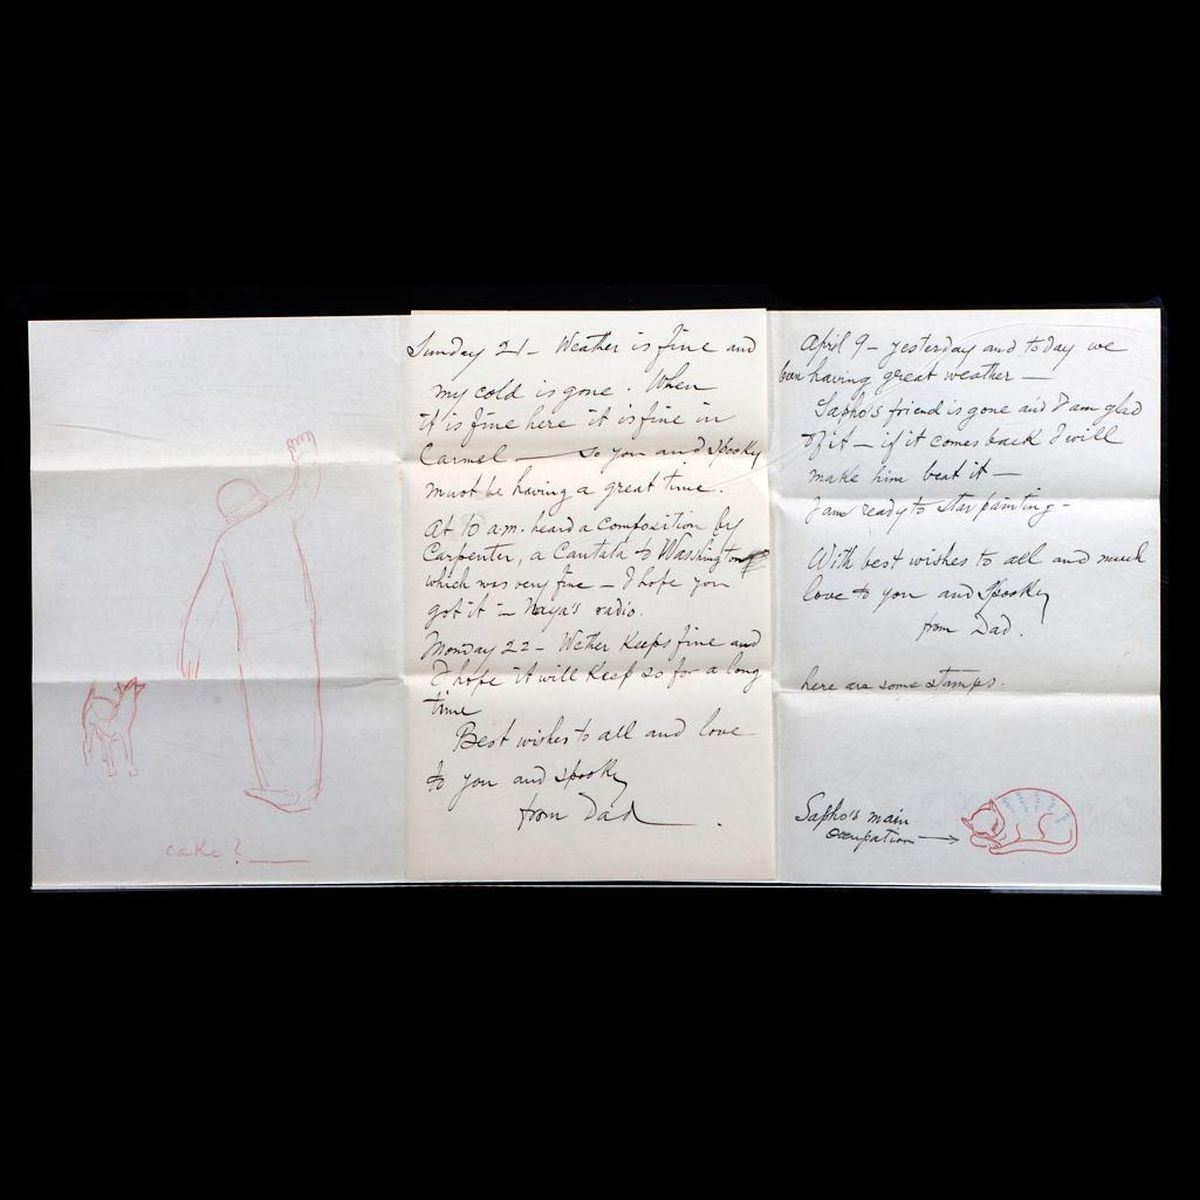 cake?
Sunday 21 - Weather is fine and
my cold is gone. When
it is fine here it is fine in
Carmel — so you and Spooky
must be having a great time.
At 10 a.m. heard a composition by
Carpenter, a Cantata to Washington
which was very fine - I hope you
got it in Naya's radio.
Monday 22 - Wether keeps fine and
I hope it will keep so for a long
time
Best wishes to all and love
to you and Spooky
from Dad.
April 9 - yesterday and today we
been having great weather —
Sapho's friend is gone and I am glad
of it - if it comes back I will
make him beat it -
I am ready to star painting -
With best wishes to all and much
love to you and Spooky
from Dad.
here are some stamps.
Sapho's main
occupation →